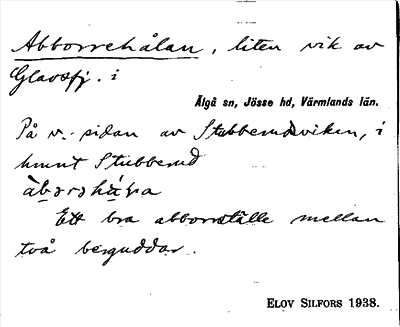 Abborrehålan, liten vik av
Glavsfj. i
Älgå sn, Jösse hd, Värmlands län.
På v. sidan av Stubberudsviken, i
hmnt Stubberud
Ett bra abborrställe mellan
två berguddar.
ELOV SILFORS 1938.